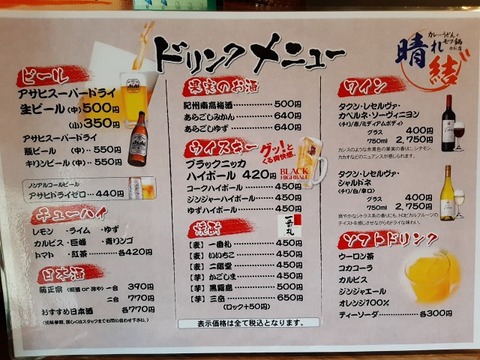 ドリンクメニュー
カレーうどんと
モツ鍋
晴れ
ビール
アサヒスーパードライ
生ビール (中) 500円
(小) 350円
アサヒスーパードライ
瓶ビール (中) ‥550円
キリンビール (中) ‥550円
ノンアルコールビール
アサヒドライゼロ ‥‥440円
チューハイ
レモン ・ ライム ・ ゆず
カルピス・巨峰 ・青リンゴ
トマト ・紅茶 ‥各420円
日本酒
菊正宗 一合 390円
二合 770円
おすすめ日本酒 各770円
果実のお酒
紀州南高梅酒 500円
あらごしみかん 640円
あらごしゆず 640円
ウイスキー
グッ!と
くる爽快感。
ブラックニッカ
ハイボール 420円
BLACK
HIGHBALL
コークハイボール 500円
ジンジャーハイボール 500円
ゆずハイボール 500円
焼酎
[麦] 一番札 500円
[麦] わいちこ 500円
[麦] 二階堂 500円
[芋] かごしま 500円
[芋] 黒霧島 500円
[芋] 三岳 650円
(ロック+50円)
表示価格は全て税込となります。
ワイン
タクン・レセルヴァ・
カベルネ・ソーヴィニヨン
(チリ/赤/ミディアムボディ)
グラス 400円
750ml 2,750円
タクン・レセルヴァ・
シャルドネ
(チリ/白/辛口)
グラス 400円
750ml 2,750円
ソフトドリンク
ウーロン茶
コカコーラ
カルピス
ジンジャエール
オレンジ100%
ティーソーダ 各300円